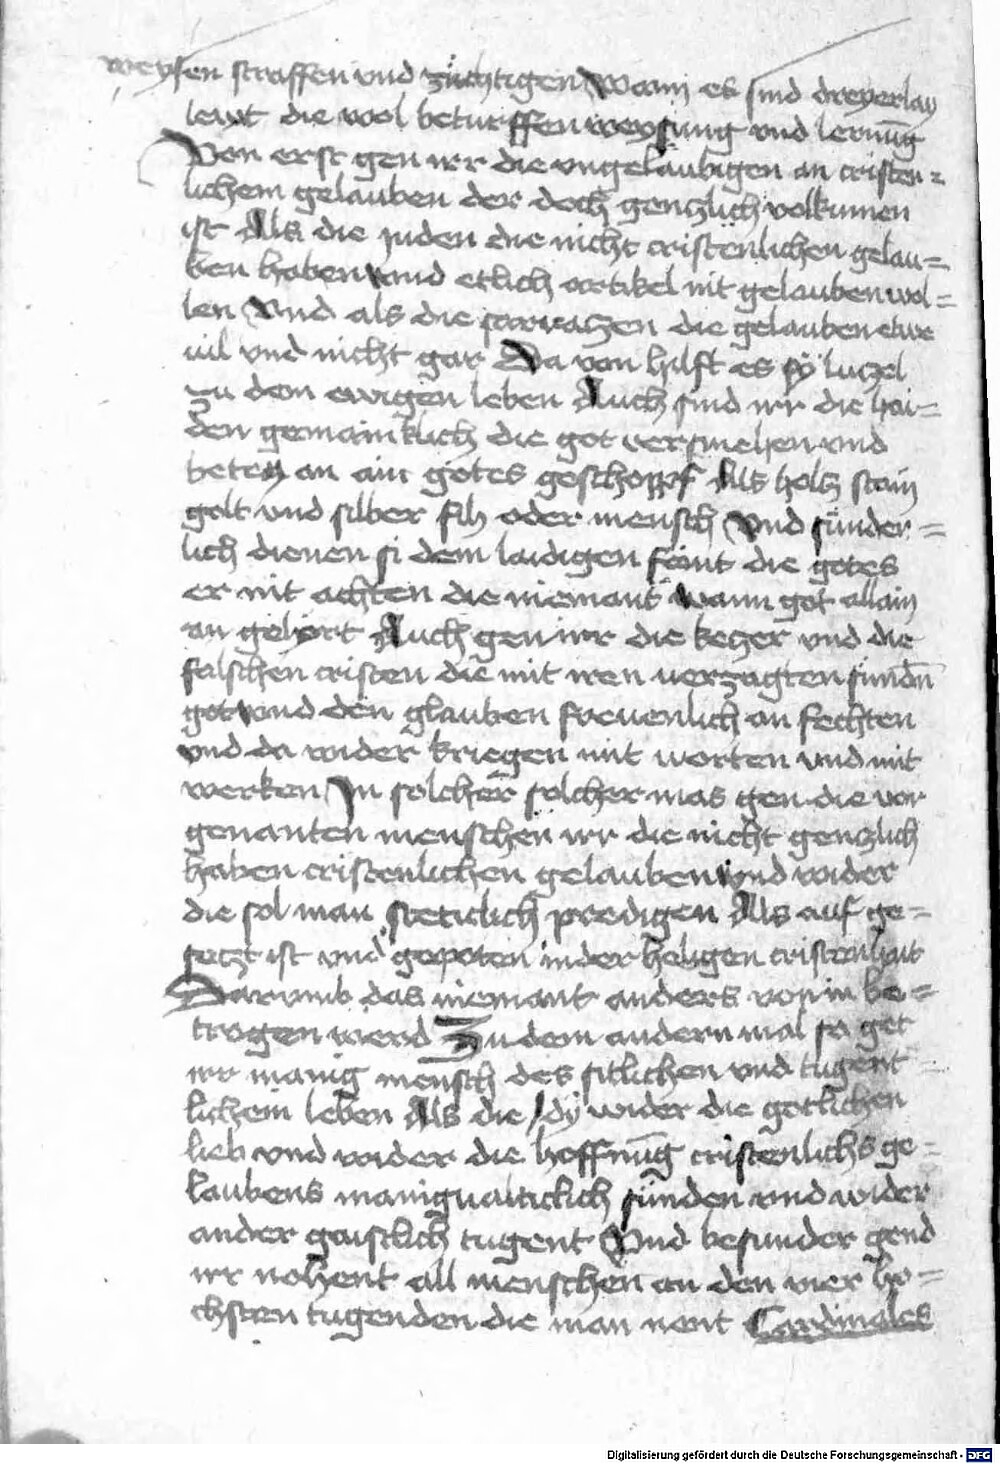 weysen straffen vnd züchtigen Wann es sind dreyerlay
lewt die wol bedurffen weysung vnd lernūg
Von erst gen irr die vngelaubigen an cristen=
lichem gelauben der doch genczlich volkumen
ist Als die juden die nicht cristenlichen gelau=
ben haben vnd etlich artikel nit gelauben wol=
len Vnd als die sarraczen die gelauben etwe
uil vnd nicht gar Da von hilft es sÿ luczel
zu dem ewigen leben Auch sind irr die hai=
den gemainklich die got versmehen vnd
beten an ain gotes geschopf Als holtz stain
golt vnd silber fih oder mensch Vnd sünder=
lich dienen si dem laidigen feint die gotes
er nit achten die niemant wann got allain
an gehort Auch gen irr die keczer vnd die
falschen cristen die mit iren verzagten sündn̄
got vnd den glauben freuenlich an fechten
vnd da wider kriegen mit worten vnd mit
werken In solcher solcher mas gen die vor
genanten menschen irr die nicht genczlich
haben cristenlichen gelauben vnd wider
die sol man steticlich predigen Als auf ge=
seczt ist vnd gepoten in der heligen cristenhait
Darumb das niemant anders von in be=
trogen werd Zu dem andern mal so get
irr manig mensch des sitlichen vnd tugent=
lichem leben Als die / dÿ wider die gotlichen
lieb vnd wider die hoffnūg cristenlichs ge=
laubens manigualticlich sünden vnd wider
ander gaistlich tugent Vnd besunder gend
irr nohent all menschen an den vier ho=
chsten tugenden die man nent Cardinales
Digitalisierung gefördert durch die Deutsche Forschungsgemeinschaft - DFG